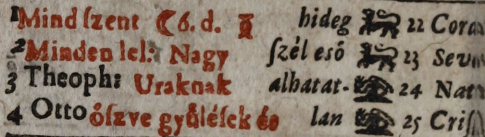 1 Mind ſzent ☾ 6. d. ♊ hideg 22 Cora
2 Minden lel: Nagy ſzél eső 23 Seve
3 Theoph: Uraknak alhatat- 24 Nat
4 Otto öſzve gyűléſek és lan 25 Criſ